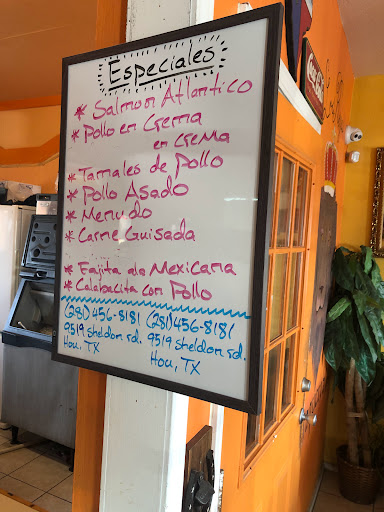 Especiales
* Salmon Atlantico
* Pollo en Crema
en crema
* Tamales de Pollo
* Pollo Asado
* Menudo
* Carne Guisada
* Fajita ala Mexicana
* Calabacita con Pollo
(281)456-8181 (281)456-8181
9519 sheldon rd. 9519 sheldon rd.
Hou, TX Hou, TX